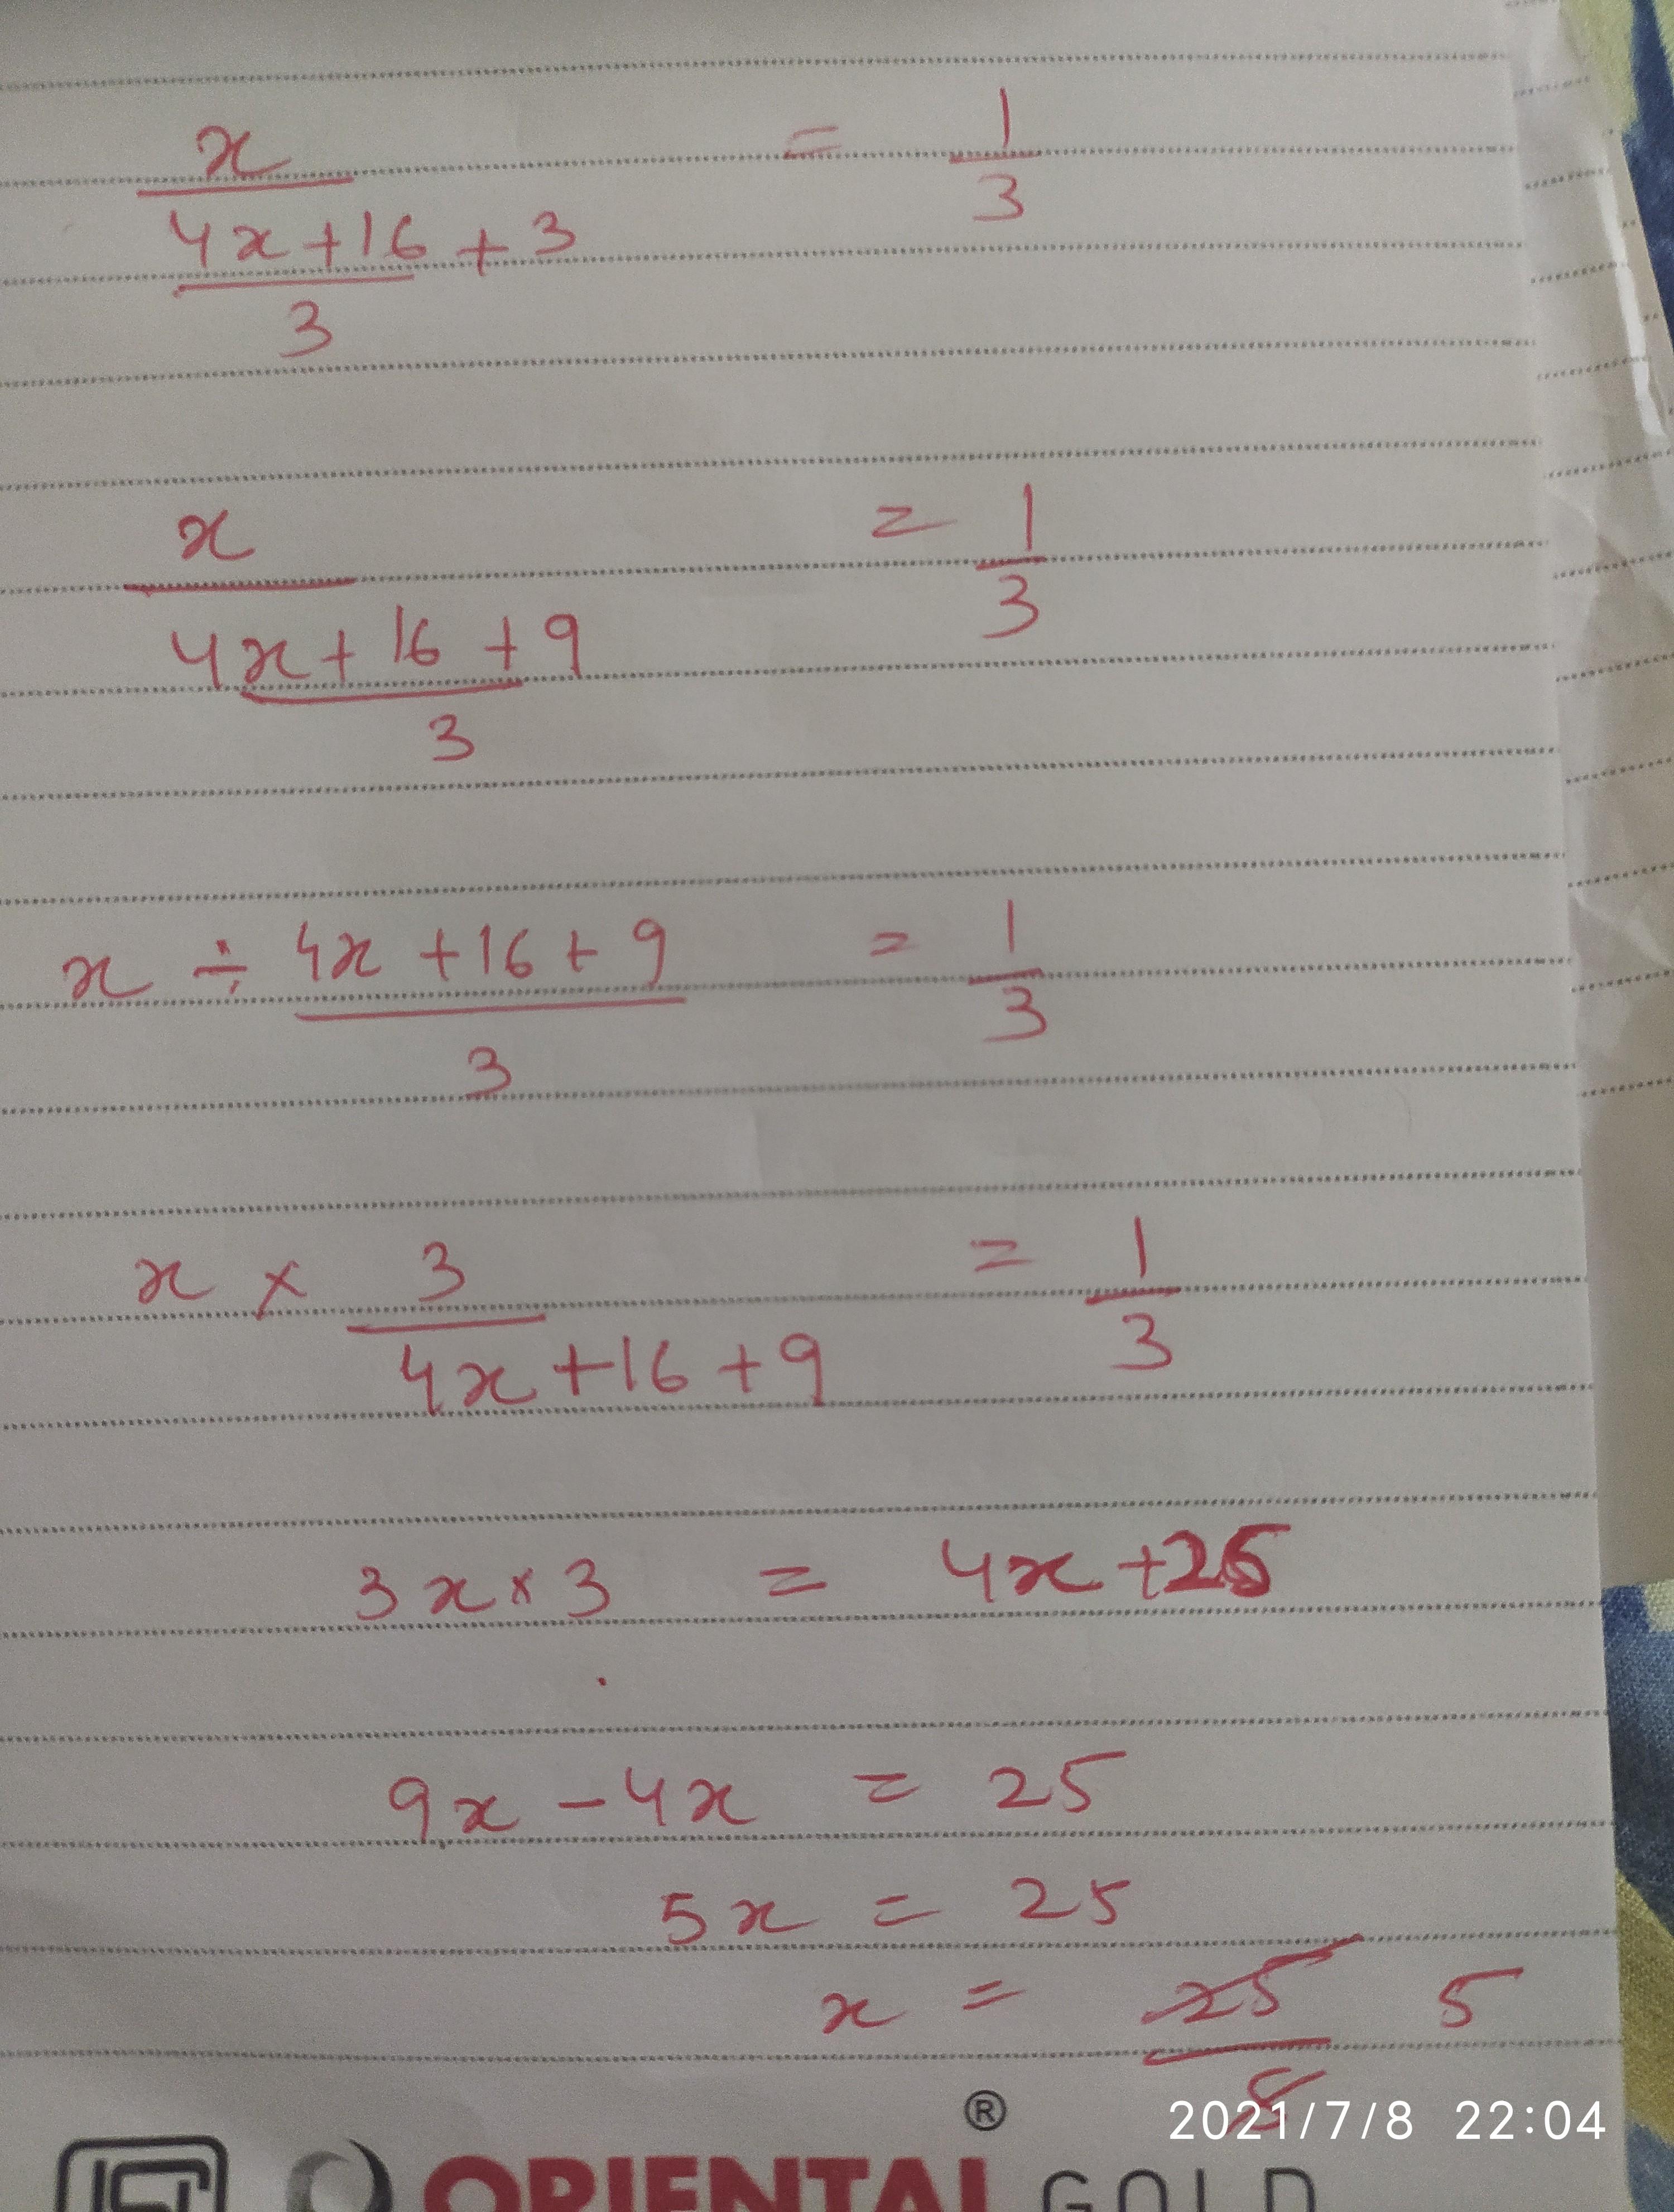 x = 1
4x+16 + 3 3
3
x = 1
4x + 16 + 9 3
3
x ÷ 4x + 16 + 9 = 1
3 3
x × 3 = 1
4x + 16 + 9 3
3x × 3 = 4x + 25
9x - 4x = 25
5x = 25
x = 25 5
5
2021/7/8 22:04
®
ORIENTAL GOLD